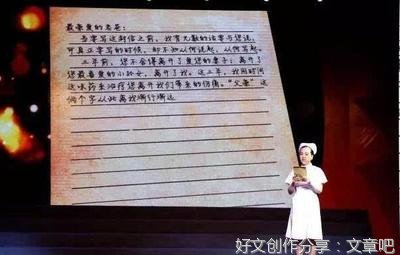 最亲爱的老爸:
当要写这封信之前,我有无数的话要与您说,
可真正要写的时候,却不知从何说起,从何写起。
三年前,您不舍得离开了爱您的妻子;离开了
您最喜爱的小孙女,离开了我。这三年,我用时间
这味药来治疗您离开我们带来的伤痛。"父亲"这
俩个字从此离我渐行渐远
好文创作分享:文章吧